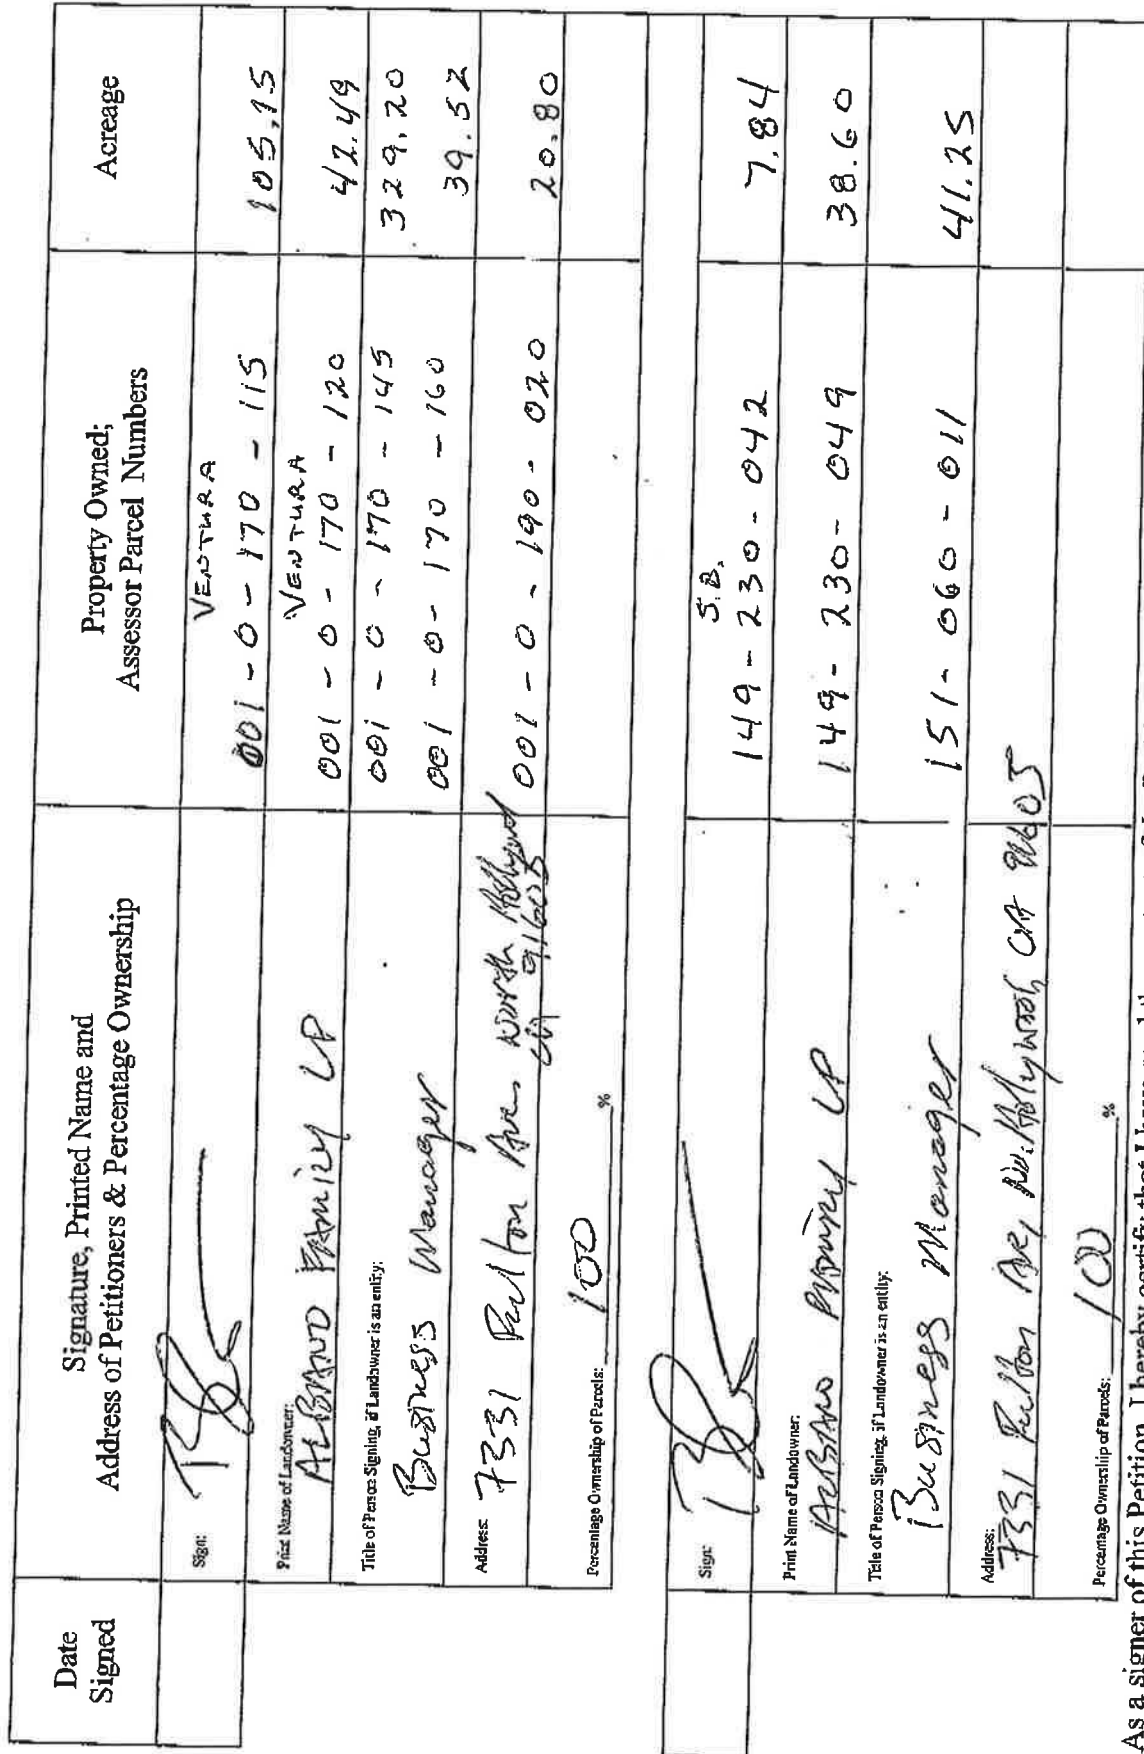 Date
Signed
Signature, Printed Name and
Address of Petitioners & Percentage Ownership
Property Owned;
Assessor Parcel Numbers
Acreage
Sign:
VENTURA
001-0-170-115 105.15
Print Name of Landowner:
ALBANO FAMILY LP
VENTURA
001-0-170-120 42.49
Title of Person Signing, if Landowner is an entity:
001-0-170-145 329.20
Business Manager
001-0-170-160 39.52
Address: 7331 Fulton Ave North Hollywood
CA 91605
001-0-190-020 20.80
Percentage Ownership of Parcels: 100 %
Sign:
S.B.
149-230-042 7.84
Print Name of Landowner:
ALBANO FAMILY LP
149-230-049 38.60
Title of Person Signing, if Landowner is an entity:
Business Manager
151-060-011 41.25
Address:
7331 Fulton Ave, No. Hollywood, CA 91605
Percentage Ownership of Parcels: 100 %
As a signer of this Petition, I hereby certify that I have read the